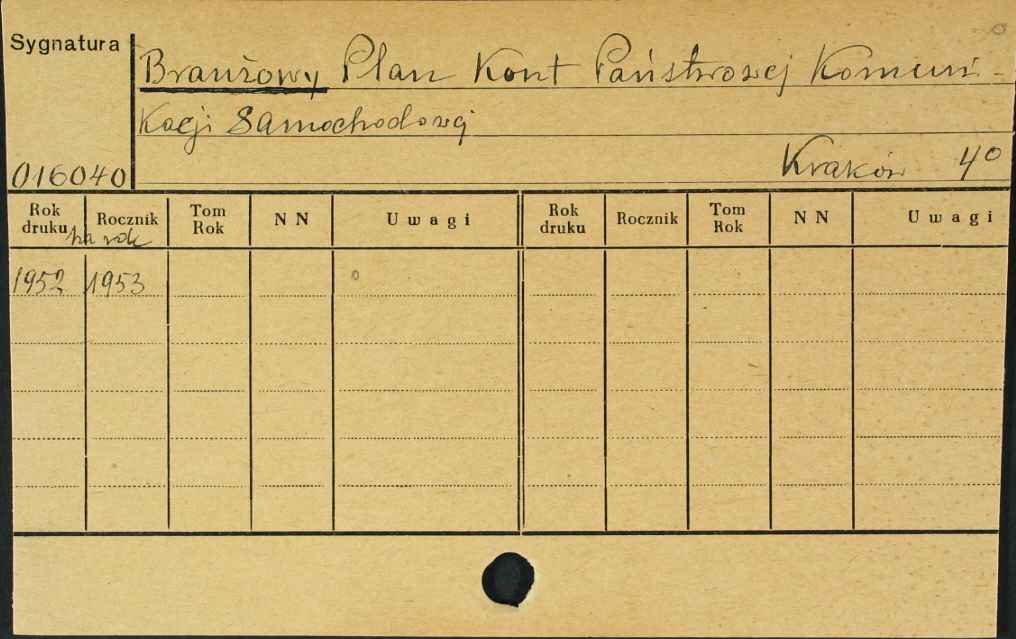 Sygnatura
Branżowy Plan Kont Państwowej Komuni-
kacji Samochodowej
016040
Kraków 4°
Rok druku Rocznik Tom Rok NN Uwagi Rok druku Rocznik Tom Rok NN Uwagi
na rok
1952 1953